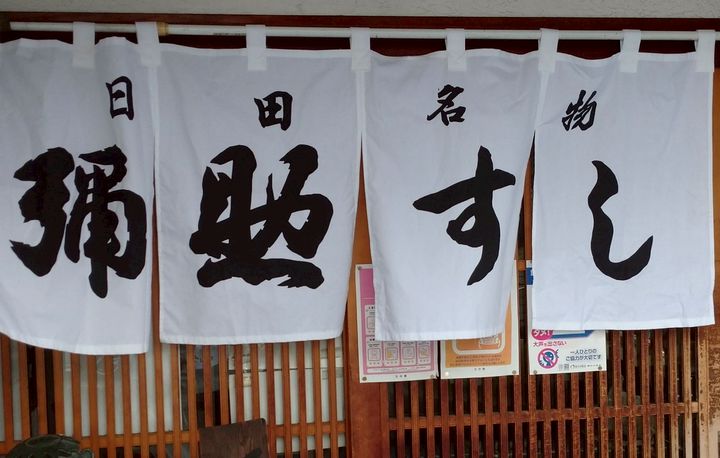 日田名物
彌助すし
ダメ!
大声を出さない
一人ひとりの
ご協力が大切です